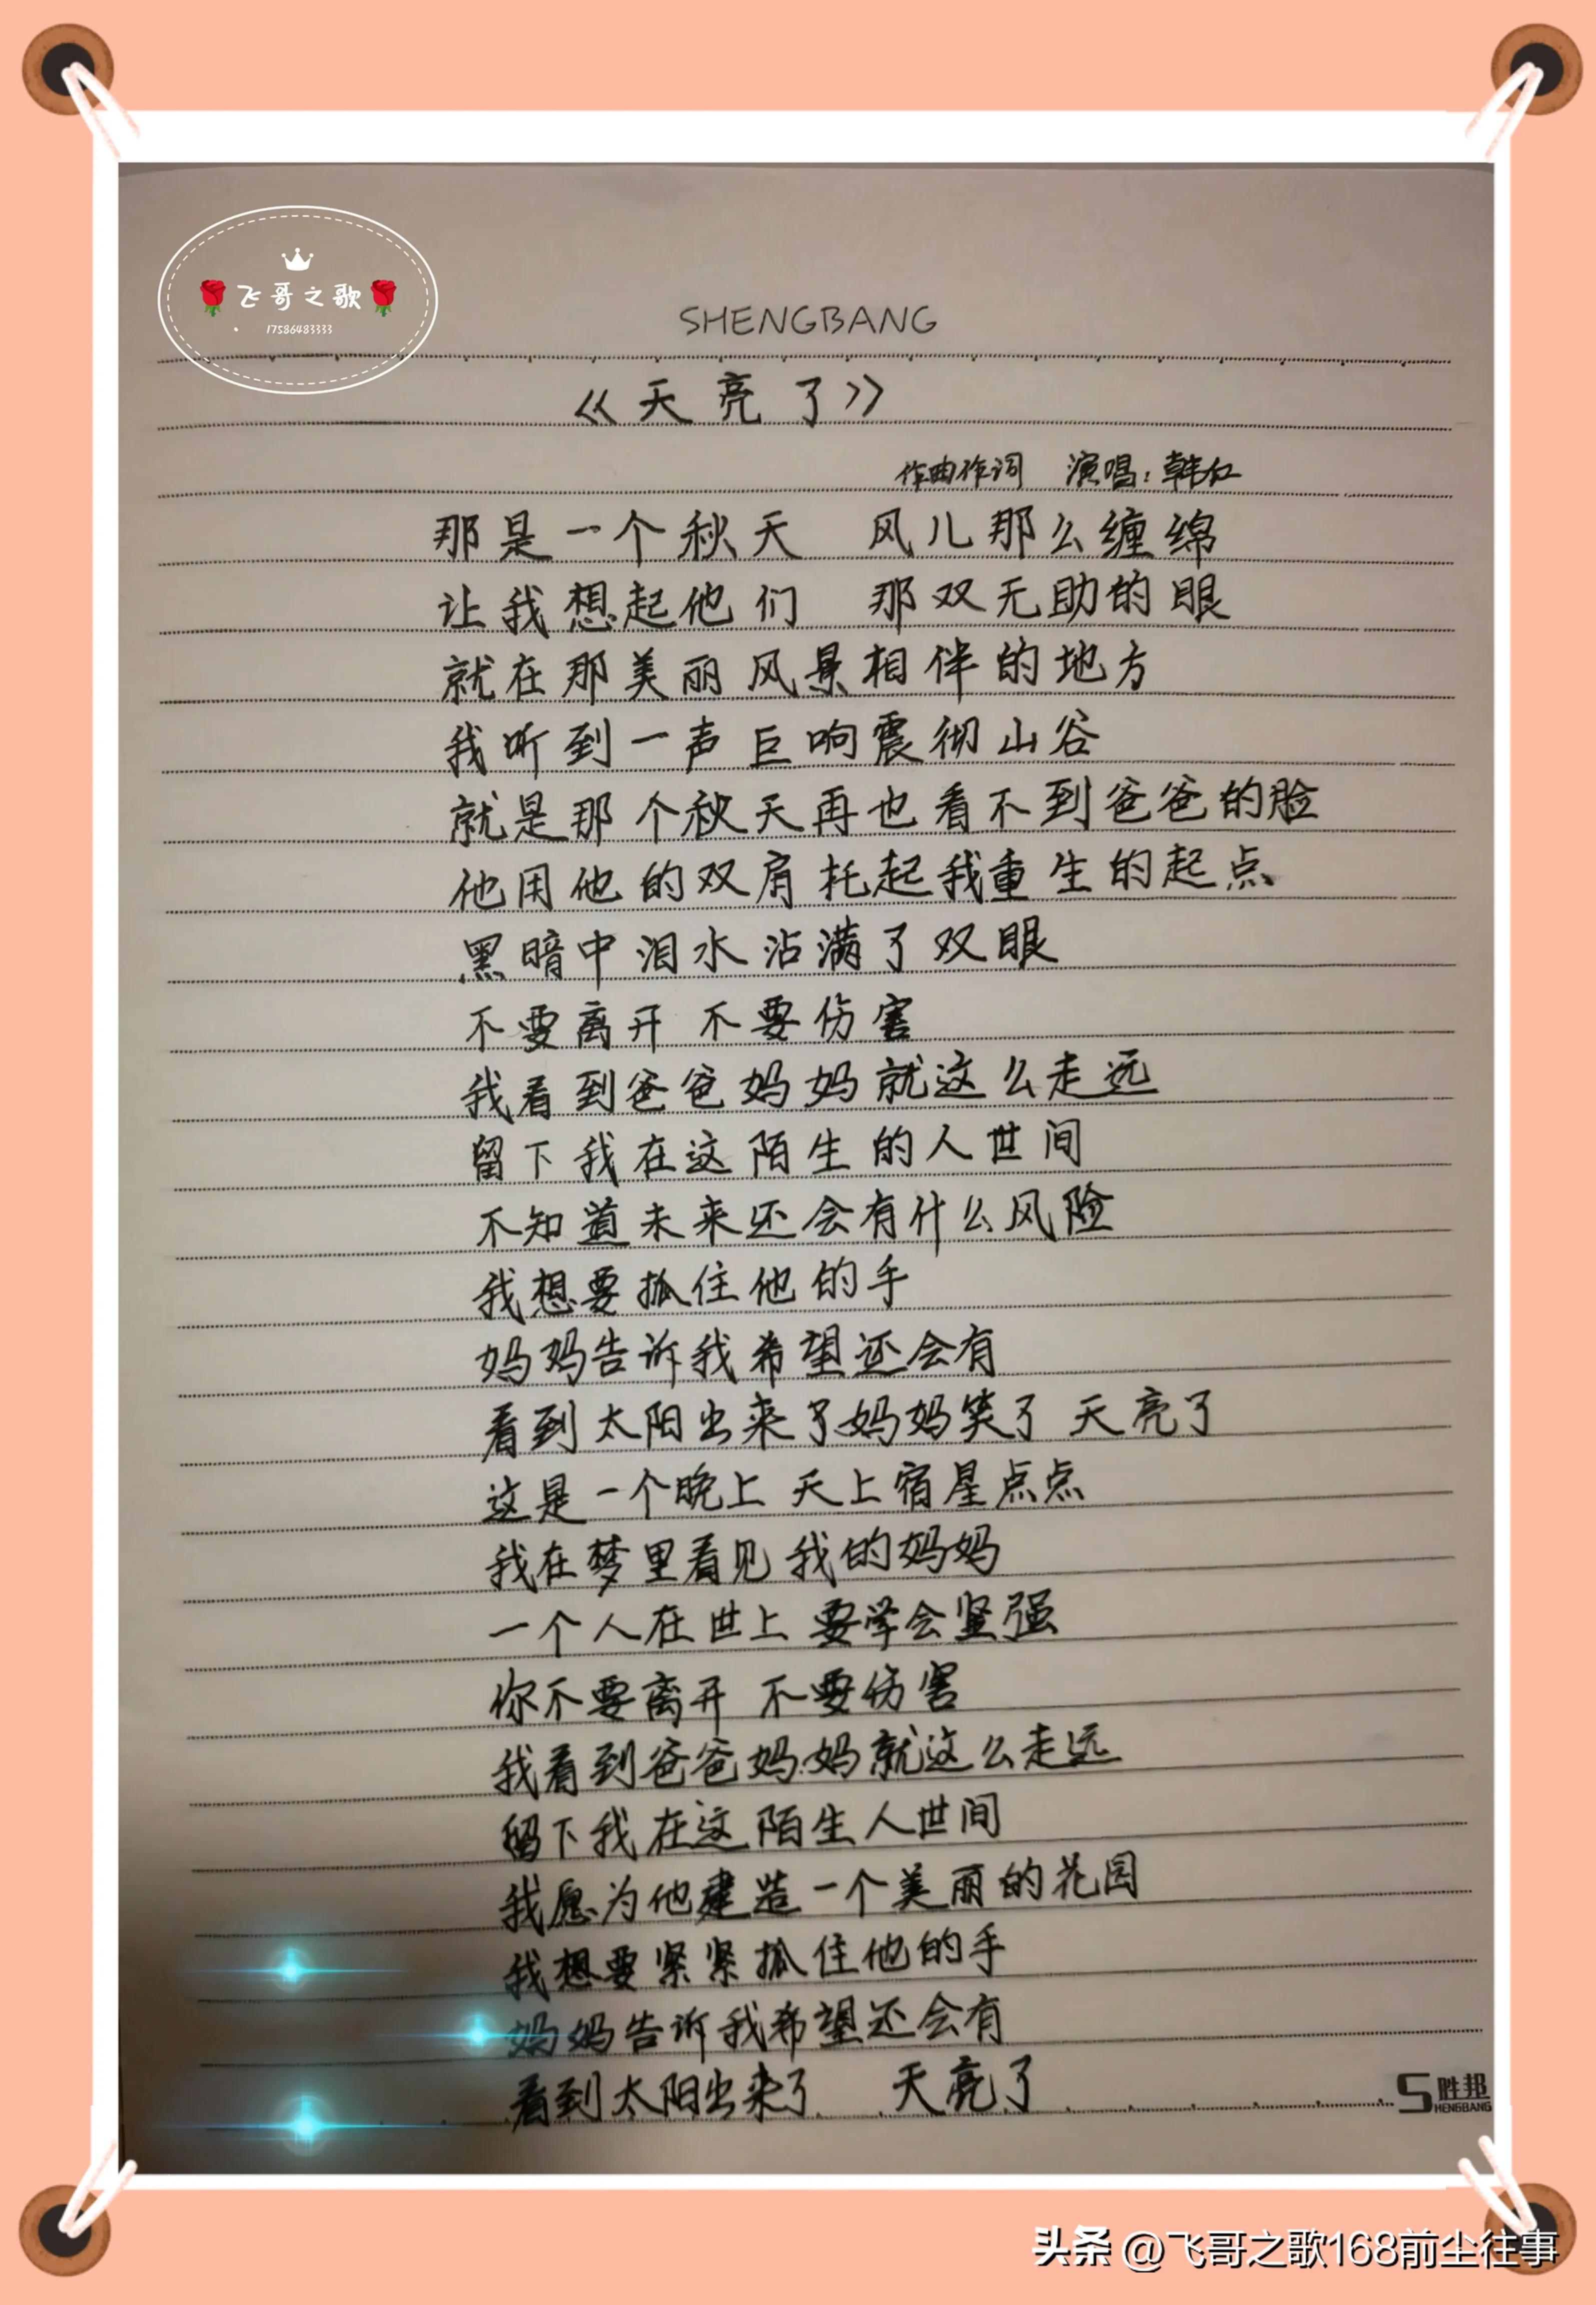 飞哥之歌
17586483333
SHENGBANG
《天亮了》
作曲作词 演唱：韩红
那是一个秋天 风儿那么缠绵
让我想起他们 那双无助的眼
就在那美丽风景相伴的地方
我听到一声巨响震彻山谷
就是那个秋天再也看不到爸爸的脸
他用他的双肩托起我重生的起点
黑暗中泪水沾满了双眼
不要离开 不要伤害
我看到爸爸妈妈就这么走远
留下我在这陌生的人世间
不知道未来还会有什么风险
我想要抓住他的手
妈妈告诉我希望还会有
看到太阳出来了妈妈笑了 天亮了
这是一个晚上 天上宿星点点
我在梦里看见我的妈妈
一个人在世上要学会坚强
你不要离开 不要伤害
我看到爸爸妈妈就这么走远
留下我在这陌生人世间
我愿为他建造一个美丽的花园
我想要紧紧抓住他的手
妈妈告诉我希望还会有
看到太阳出来了 天亮了
胜邦
SHENGBANG
头条 @飞哥之歌168前尘往事